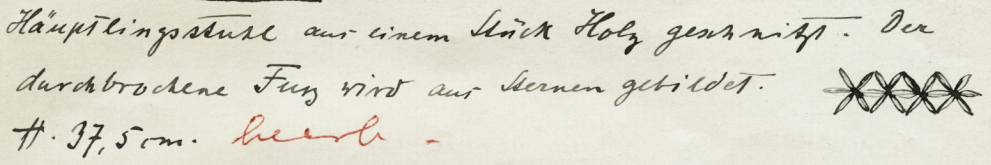 Häuptlingsstuhl aus einem Stück Holz geschnitzt. Der
durchbrochene Fusz wird aus Sternen gebildet.
H. 37,5 cm. bearb.